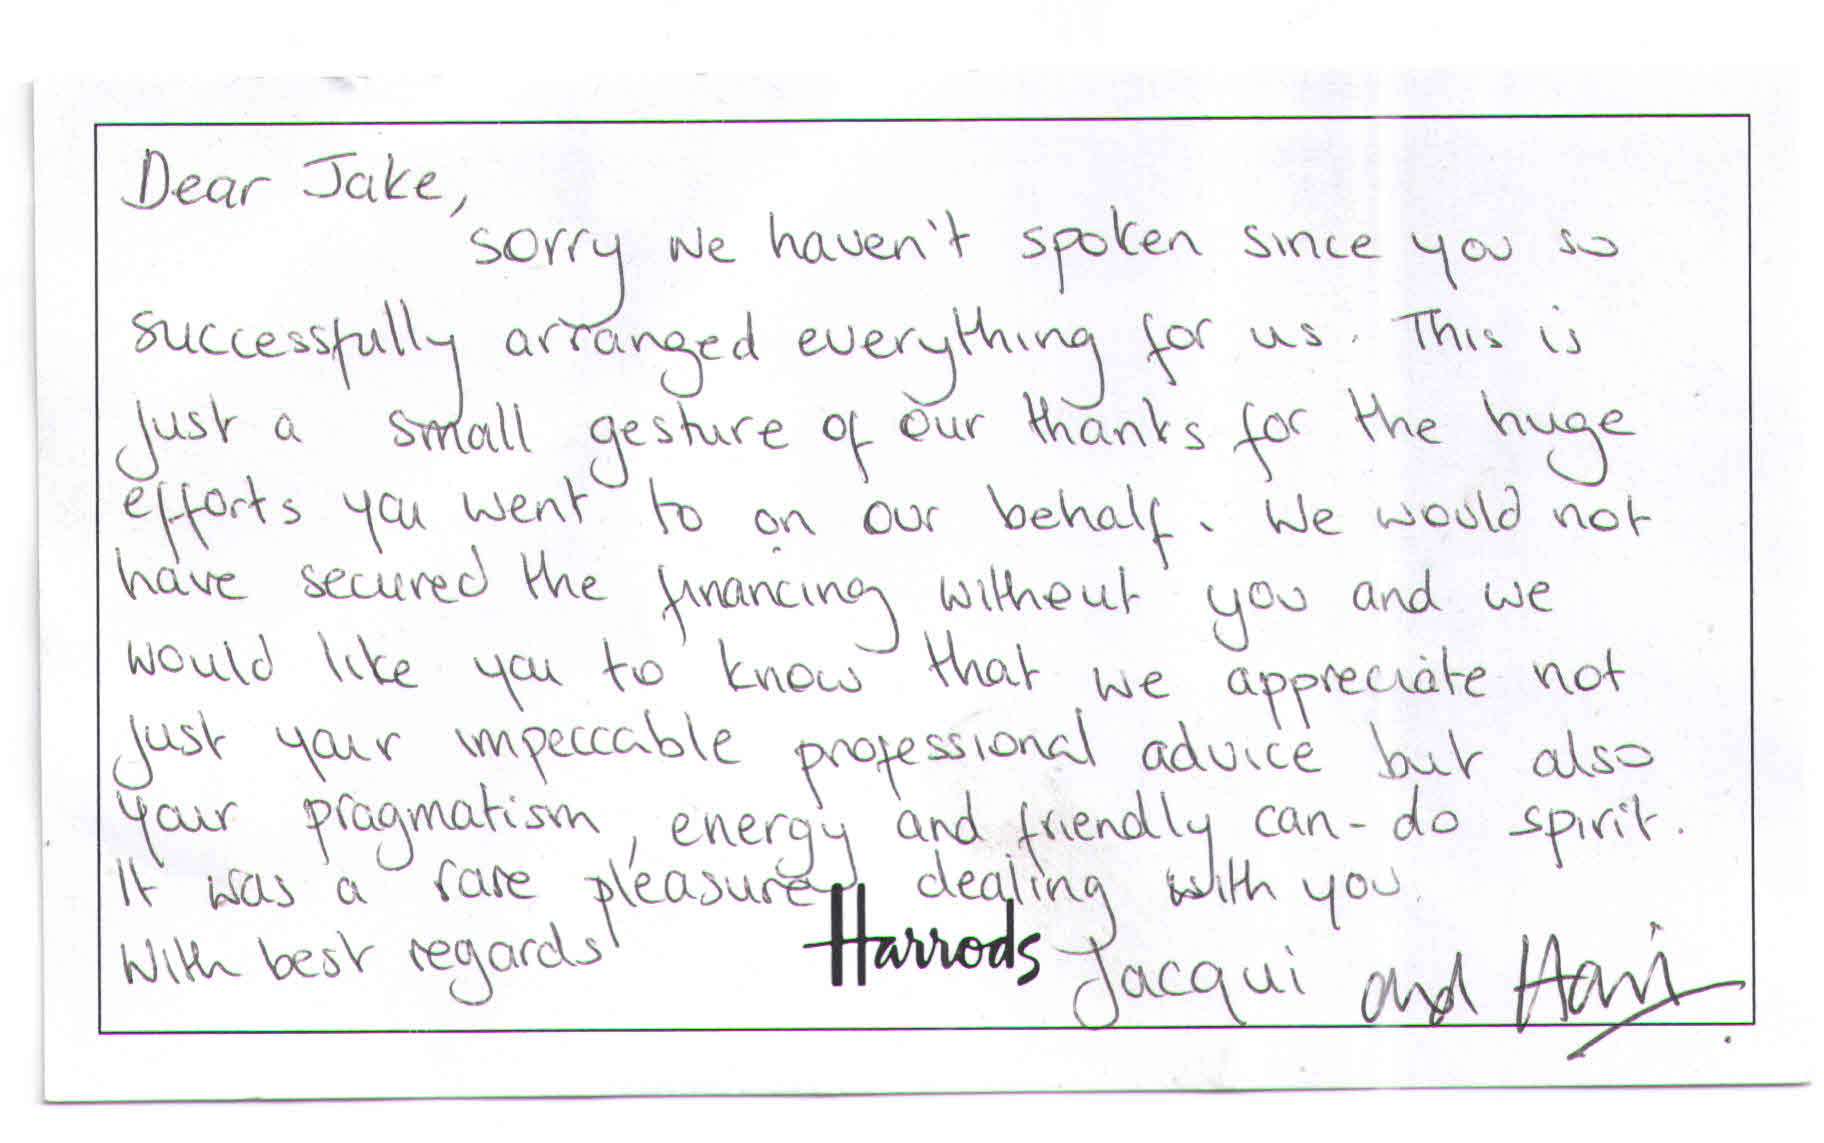 Dear Jake,
sorry we haven't spoken since you so
successfully arranged everything for us. This is
just a small gesture of our thanks for the huge
efforts you went to on our behalf. We would not
have secured the financing without you and we
would like you to know that we appreciate not
just your impeccable professional advice but also
your pragmatism, energy and friendly can-do spirit.
It was a rare pleasure dealing with you.
With best regards Harrods Jacqui and